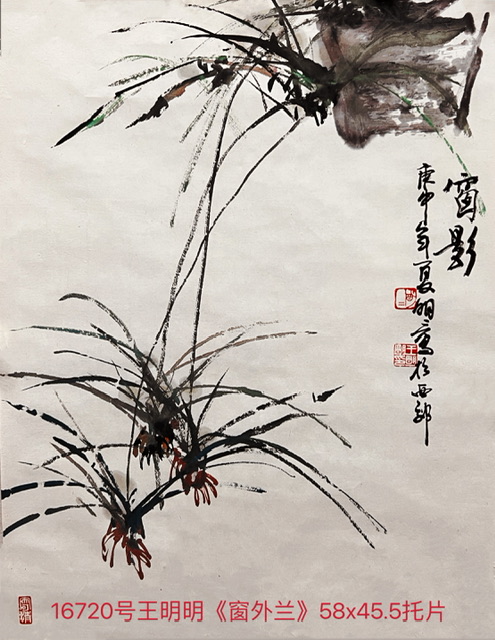 窗影
庚申年夏明〻寫於西郊
16720号王明明《窗外兰》58x45.5托片